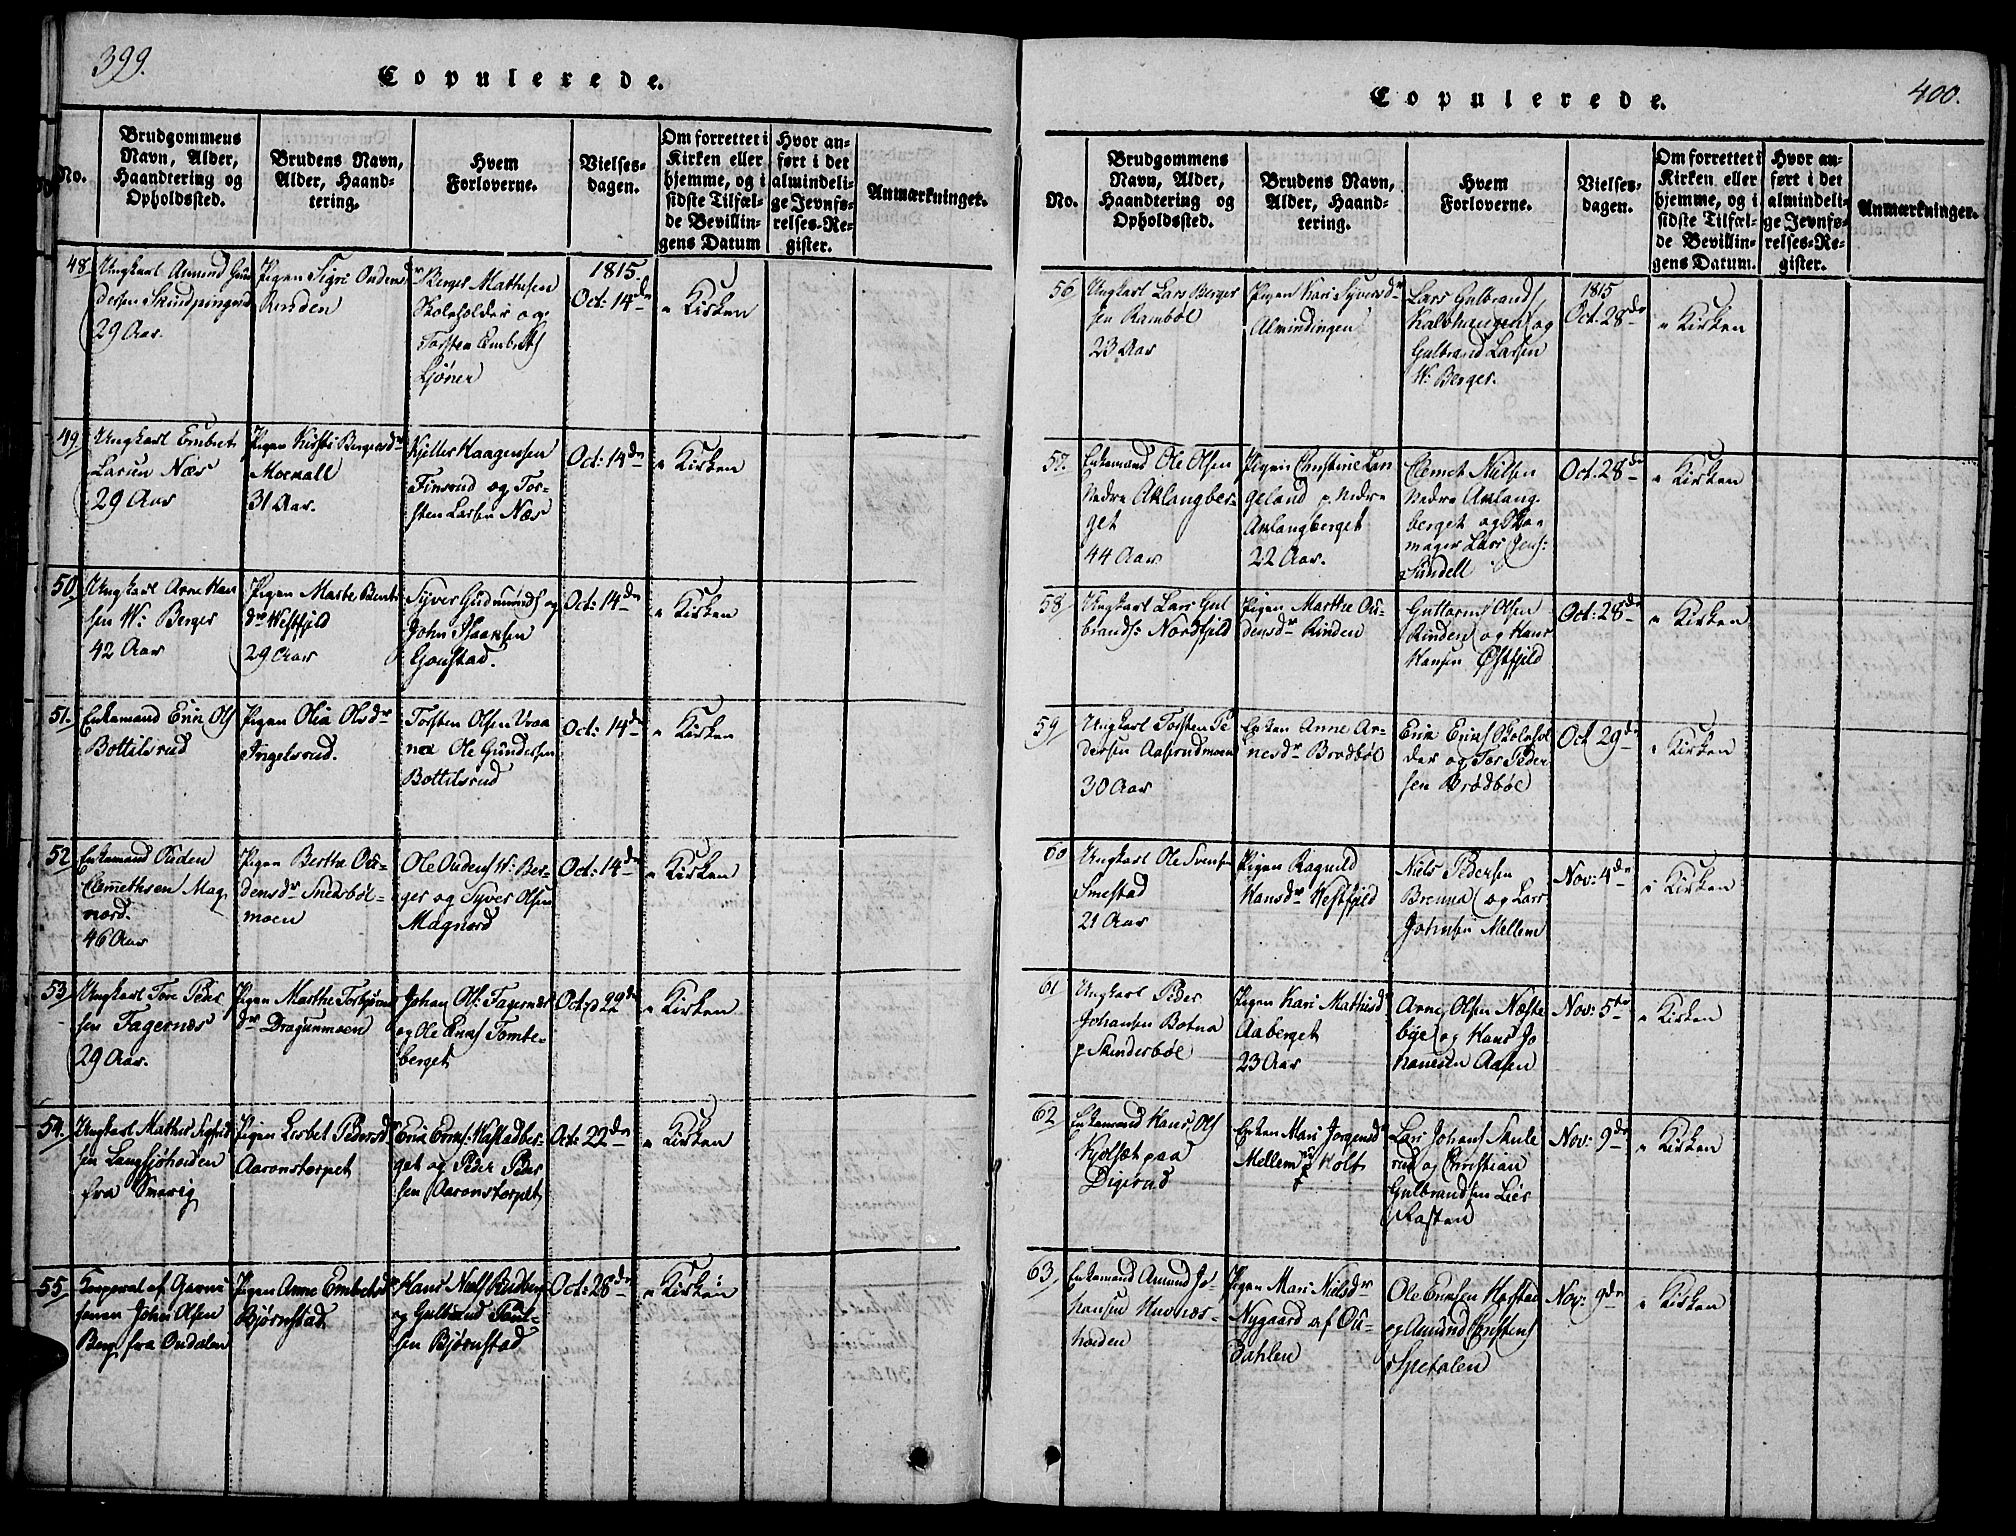 399.
Copulerede.
No.
Brudgommens Navn, Alder, Haandtering og Opholdssted.
Brudens Navn, Alder, Haandtering.
Hvem Forloverne.
Vielses-dagen.
Om forrettet i Kirken eller hjemme, og i sidste Tilfælde Bevillingens Datum
Hvor anført i det almindelige Jevnførelses-Register.
Anmærkninger.
48
Ungkarl Amund
29 Aar.
Pigen Sigri Oudensdr
Rinden
Berger Mathisen
Skoleholder og
Torsten Embrets
Ljöner
1815.
Oct: 14de
i Kirken
49
Ungkarl Embret
Larsen Næs
29 Aar
Pigen Kirsti Bergersdr
Morvall
31 Aar.
Kjittel Haagensen
Finsrud og Tor-
sten Larsen Næs
Oct: 14de
i Kirken
50
Ungkarl Arne Han
sen W: Berger
42 Aar
Pigen Marte Bernts
dr Westfjeld
29 Aar
Syver Gudmunds og
John Isaaksen
Gonstad.
Oct: 14de
i Kirken
51.
Enkemand Erik Ols
Bottilsrud
Pigen Olia Olsdr
Ingelsrud.
Torsten Olsen Vraa
Ole Gundersen
Bottilsrud
Oct: 14de
i Kirken
52
Enkemand Ouden
Clemethsen Mag
nord.
46 Aar
Pigen Berthe Ou-
densdr Snersböl-
moen
Ole Oudens W: Ber-
ger og Syver Olsen
Magnord
Oct: 14de
i Kirken
53
Ungkarl Tore Peder
sen Fagernæs
29 Aar.
Pigen Marthe Torbjörns
dr Dragunmoen
Johan Ols: Fagernæs
og Ole Eriks Tomte-
berget
Oct: 22de
i Kirken
54.
Ungkarl Mathis Sigfrid
sen Langsjöheiden
fra Sverrig
Pigen Lisbet Pedersd
Aaronstorpet
Erik Eriks: Hastadber-
get og Peder Peder
sen Aaronstorpet
Oct: 22de
i Kirken
55
Korporal af Garni
sonen John Olsen
Berg fra Oudalen
Pigen Anne Embretsdr
Björnstad
Hans Niels
og Gulbrand Poul-
sen Björnstad
Oct: 28de
i Kirken
400.
Copulerede.
No.
Brudgommens Navn, Alder, Haandtering og Opholdssted.
Brudens Navn, Alder, Haandtering.
Hvem Forloverne.
Vielses-dagen.
Om forrettet i Kirken eller hjemme, og i sidste Tilfælde Bevillingens Datum.
Hvor anført i det almindelige Jevnførelses-Register.
Anmærkninger.
56
Ungkarl Lars Berger
sen Ramböl
23 Aar
Pigen Kari Syversdr
Almindingen
Lars Gulbrands
Kalvhaugen og
Gulbrand Larsen
W: Berger.
1815
Oct: 28de
i Kirken
57.
Enkemand Ole Olsen
Nedre Aklangber
get
44 Aar
Pigen Christine Lan
geland p Nedre
Aklangberget
22 Aar.
Clemet Nilsen
Nedre Aklang
berget og Skoe
mager Lars Jens:
Sundell
Oct: 28de
i Kirken
58
Ungkarl Lars Gul
brands: Nordfjeld
Pigen Marthe Ou-
densdr Rinden
Guttorm Olsen
Rinden og Hans
Hansen Østfjeld
Oct: 28de
i Kirken
59
Ungkarl Torsten Pe
dersen Aasrudmoen
30 Aar
Enken Anne Ar-
nesdr Brødböl
Erik Eriks Skolehol
der og Tor Peder
sen Brødböl
Oct 29de
i Kirken
60
Ungkarl Ole Svensen
Smestad
21 Aar
Pigen Ragnild
Hansdr Westfjeld
Niels Pedersen
Brenna og Lars
Johnsen Mellem
Nov: 4de
i Kirken
61
Ungkarl Peder
Johansen Botna
p Skinderböl
Pigen Kari Mathisd
Aaberget
23 Aar
Arne Olsen Næste
böe og Hans Jo
hannesen Aasen
Nov: 5te
i Kirken
62
Enkemand Hans Ols
Kjölset paa
Digerud
Enken Mari Jorgensd
Mellem p Holt
Lars Johans Skule
rud og Christian
Gulbrandsen Lier
Pladsen
Nov: 9de
i Kirken
63
Enkemand Amund Jo-
hansen Huvnæs-
heiden
Pigen Mari Nielsdr
Nygaard af Ou-
dahlen
Ole Eriksen Hastad
og Amund Christens
Spetalen
Nov: 9de
i Kirken